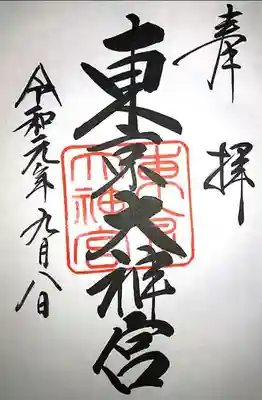 奉拝
東京大神宮
東京大神宮
令和元年九月八日